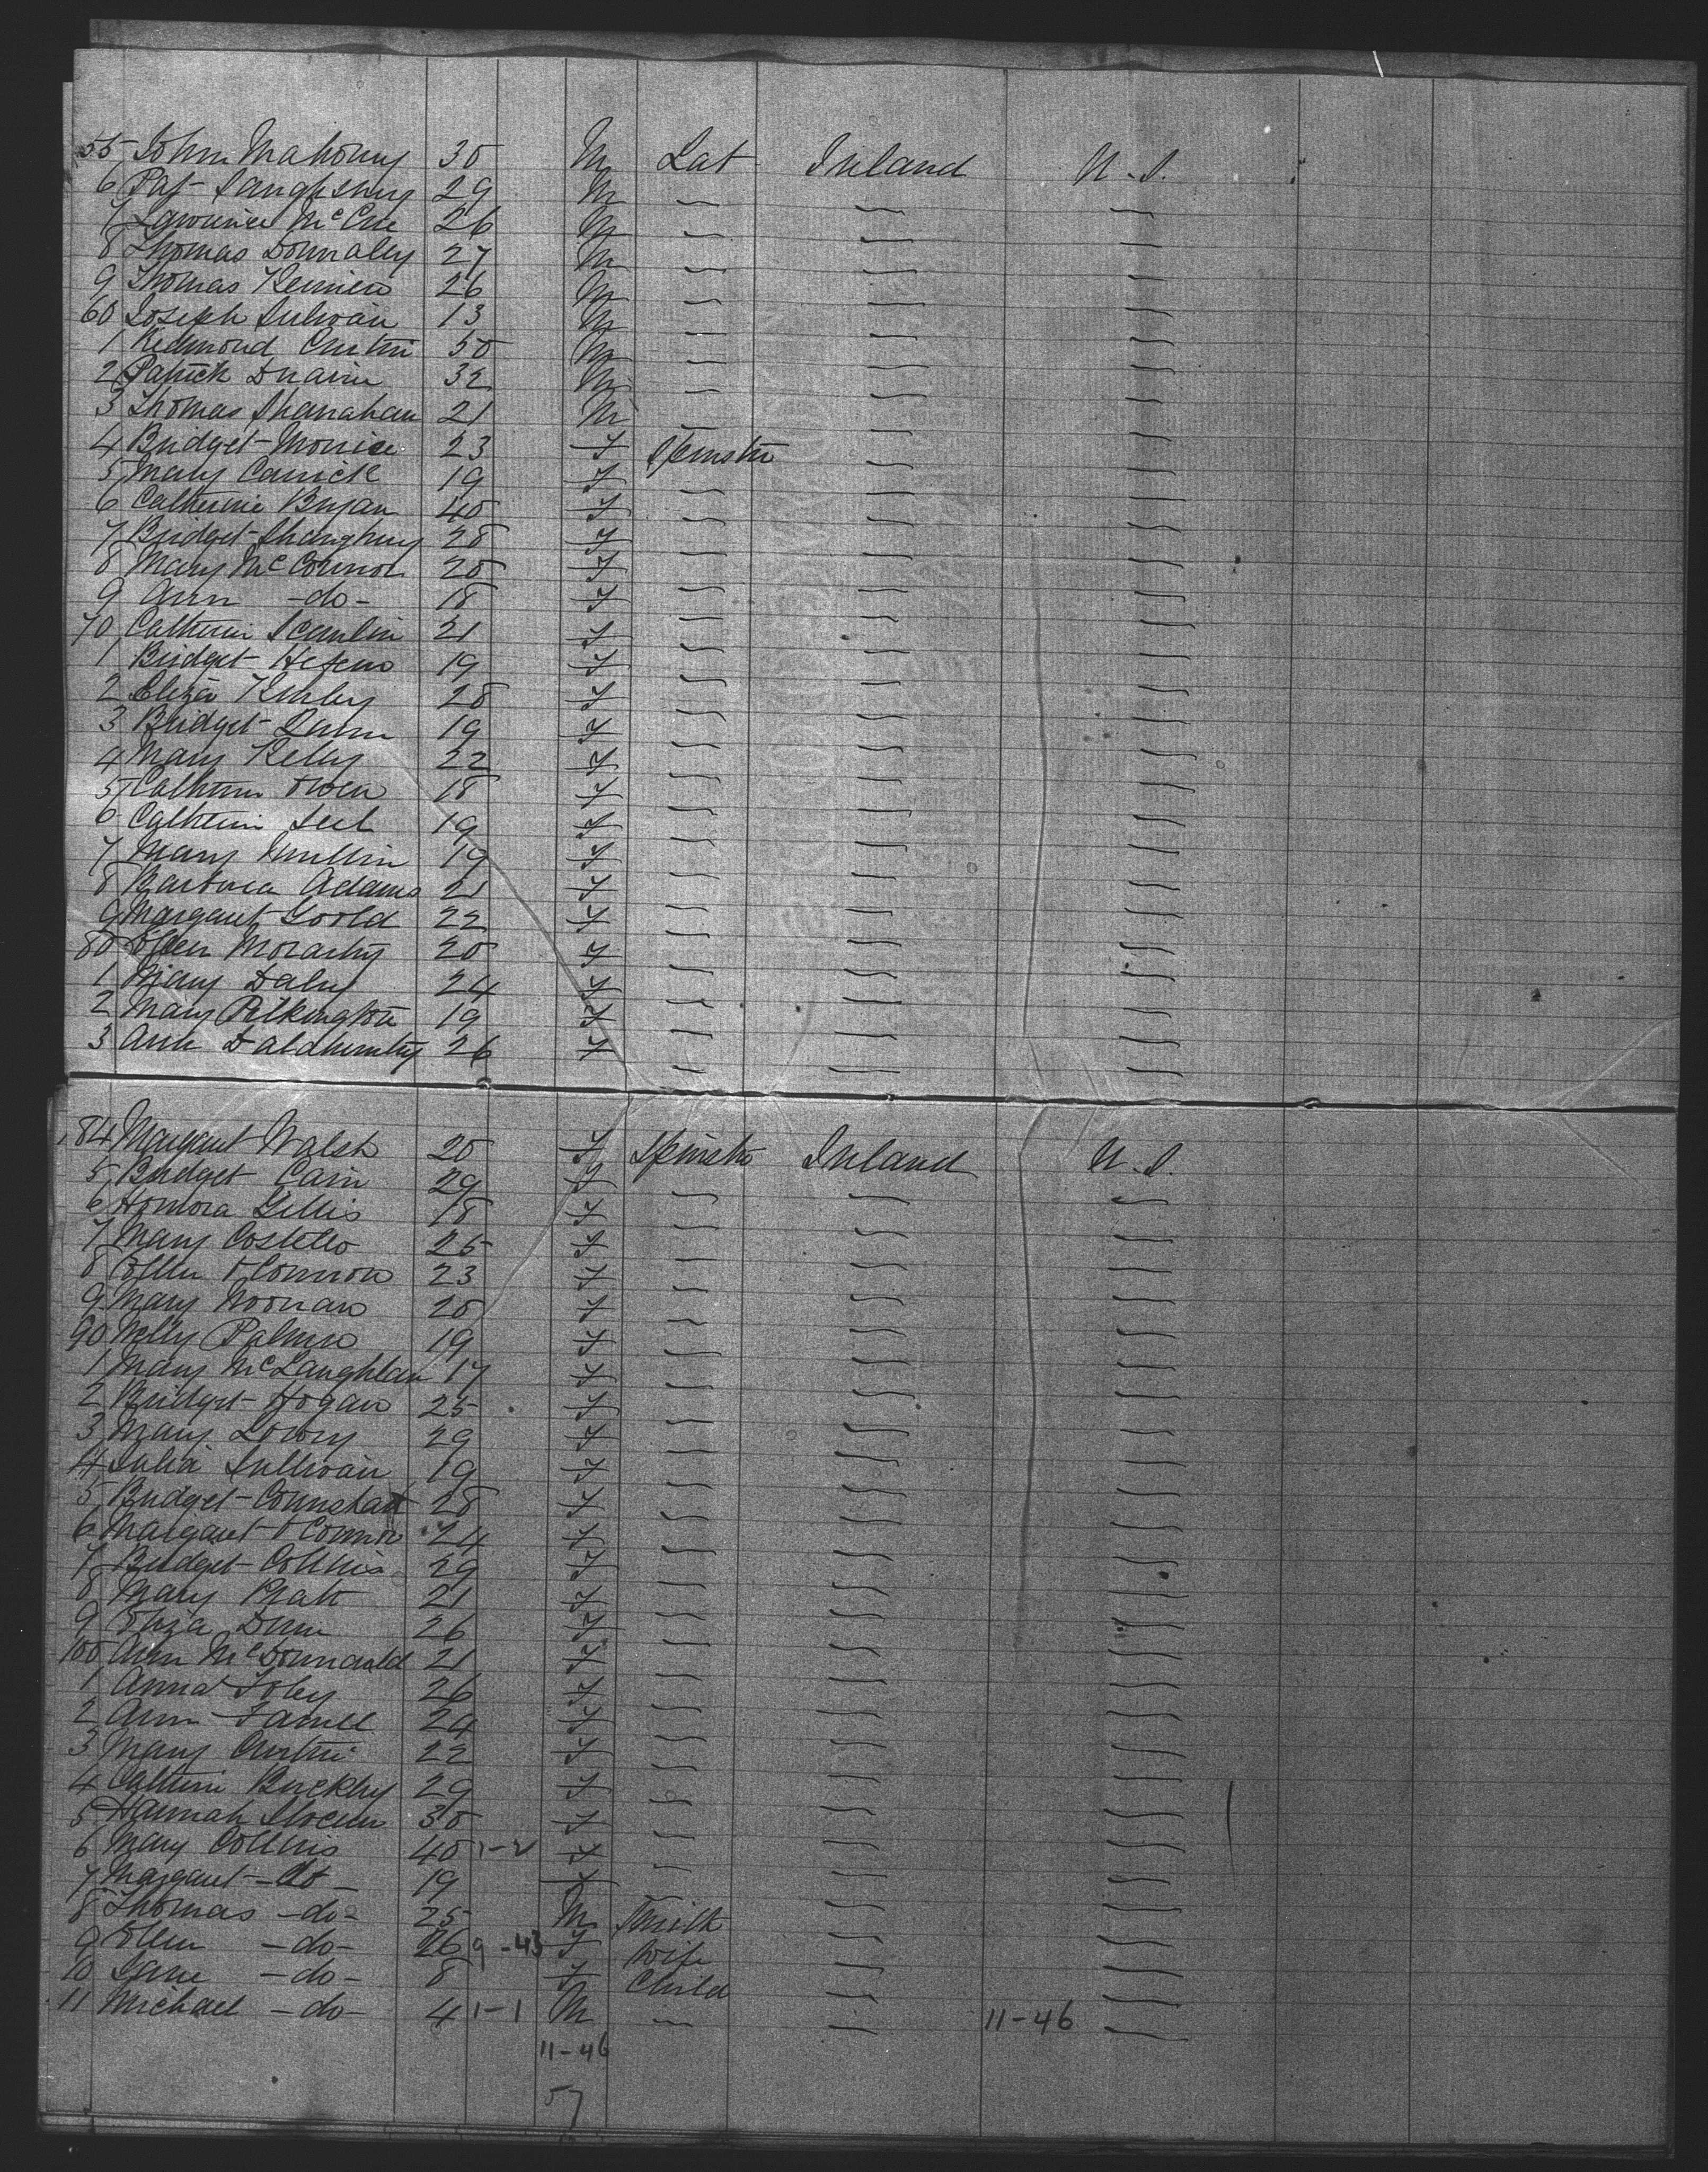 55 John Mahony 30 M Lab Ireland U.S.
6 Pat 29 M
7 Lawrence McCue 26 M
8 Thomas Donnaley 27 M
9 Thomas 26 M
60 Joseph Sulivan 13 M
1 Redmond Curtin 50 M
2 Patrick 32 M
3 Thomas Shanahan 21 M
4 Bridget 23 F Spinster
5 Mary Carrick 19 F
6 Catherine Bryan 40 F
7 Bridget 28 F
8 Mary McConnor 20 F
9 Ann -do- 18 F
70 Catherine Scanlin 21 F
1 Bridget 19 F
2 Eliza 28 F
3 Bridget Quinn 19 F
4 Mary Kelly 22 F
5 Catherine Owen 18 F
6 Catherine 19 F
7 Mary Mullin 19 F
8 Barbara Adams 21 F
9 Margaret Goold 22 F
80 Ellen Moriarty 20 F
1 Mary Daly 24 F
2 Mary Pilkington 19 F
3 Ann 26 F
84 Margaret Walsh 20 F Spinster Ireland U.S.
5 Bridget Cain 29 F
6 Honora Gillis 18 F
7 Mary Costello 25 F
8 Ellen OConnor 23 F
9 Mary Noonan 20 F
90 Nelly Palmer 19 F
1 Mary McLaughlan 17 F
2 Bridget Hogan 25 F
3 Mary Lowry 29 F
4 Julia Sullivan 19 F
5 Bridget 28 F
6 Margaret OConnor 24 F
7 Bridget Collins 29 F
8 Mary Pratt 21 F
9 Eliza Dunn 26 F
100 Ann McDonnald 21 F
1 Anna Foley 26 F
2 Ann Farrell 24 F
3 Mary Curtin 22 F
4 Catherine Buckley 29 F
5 Hannah 30 F
6 Mary Collins 40 1-2 F
7 Margaret -do- 19 F
8 Thomas -do- 25 M Smith
9 Ellen -do- 26 9-43 F Wife
10 Jane -do- 8 F Child
11 Michael -do- 4 1-1 M 11-46
11-46
57